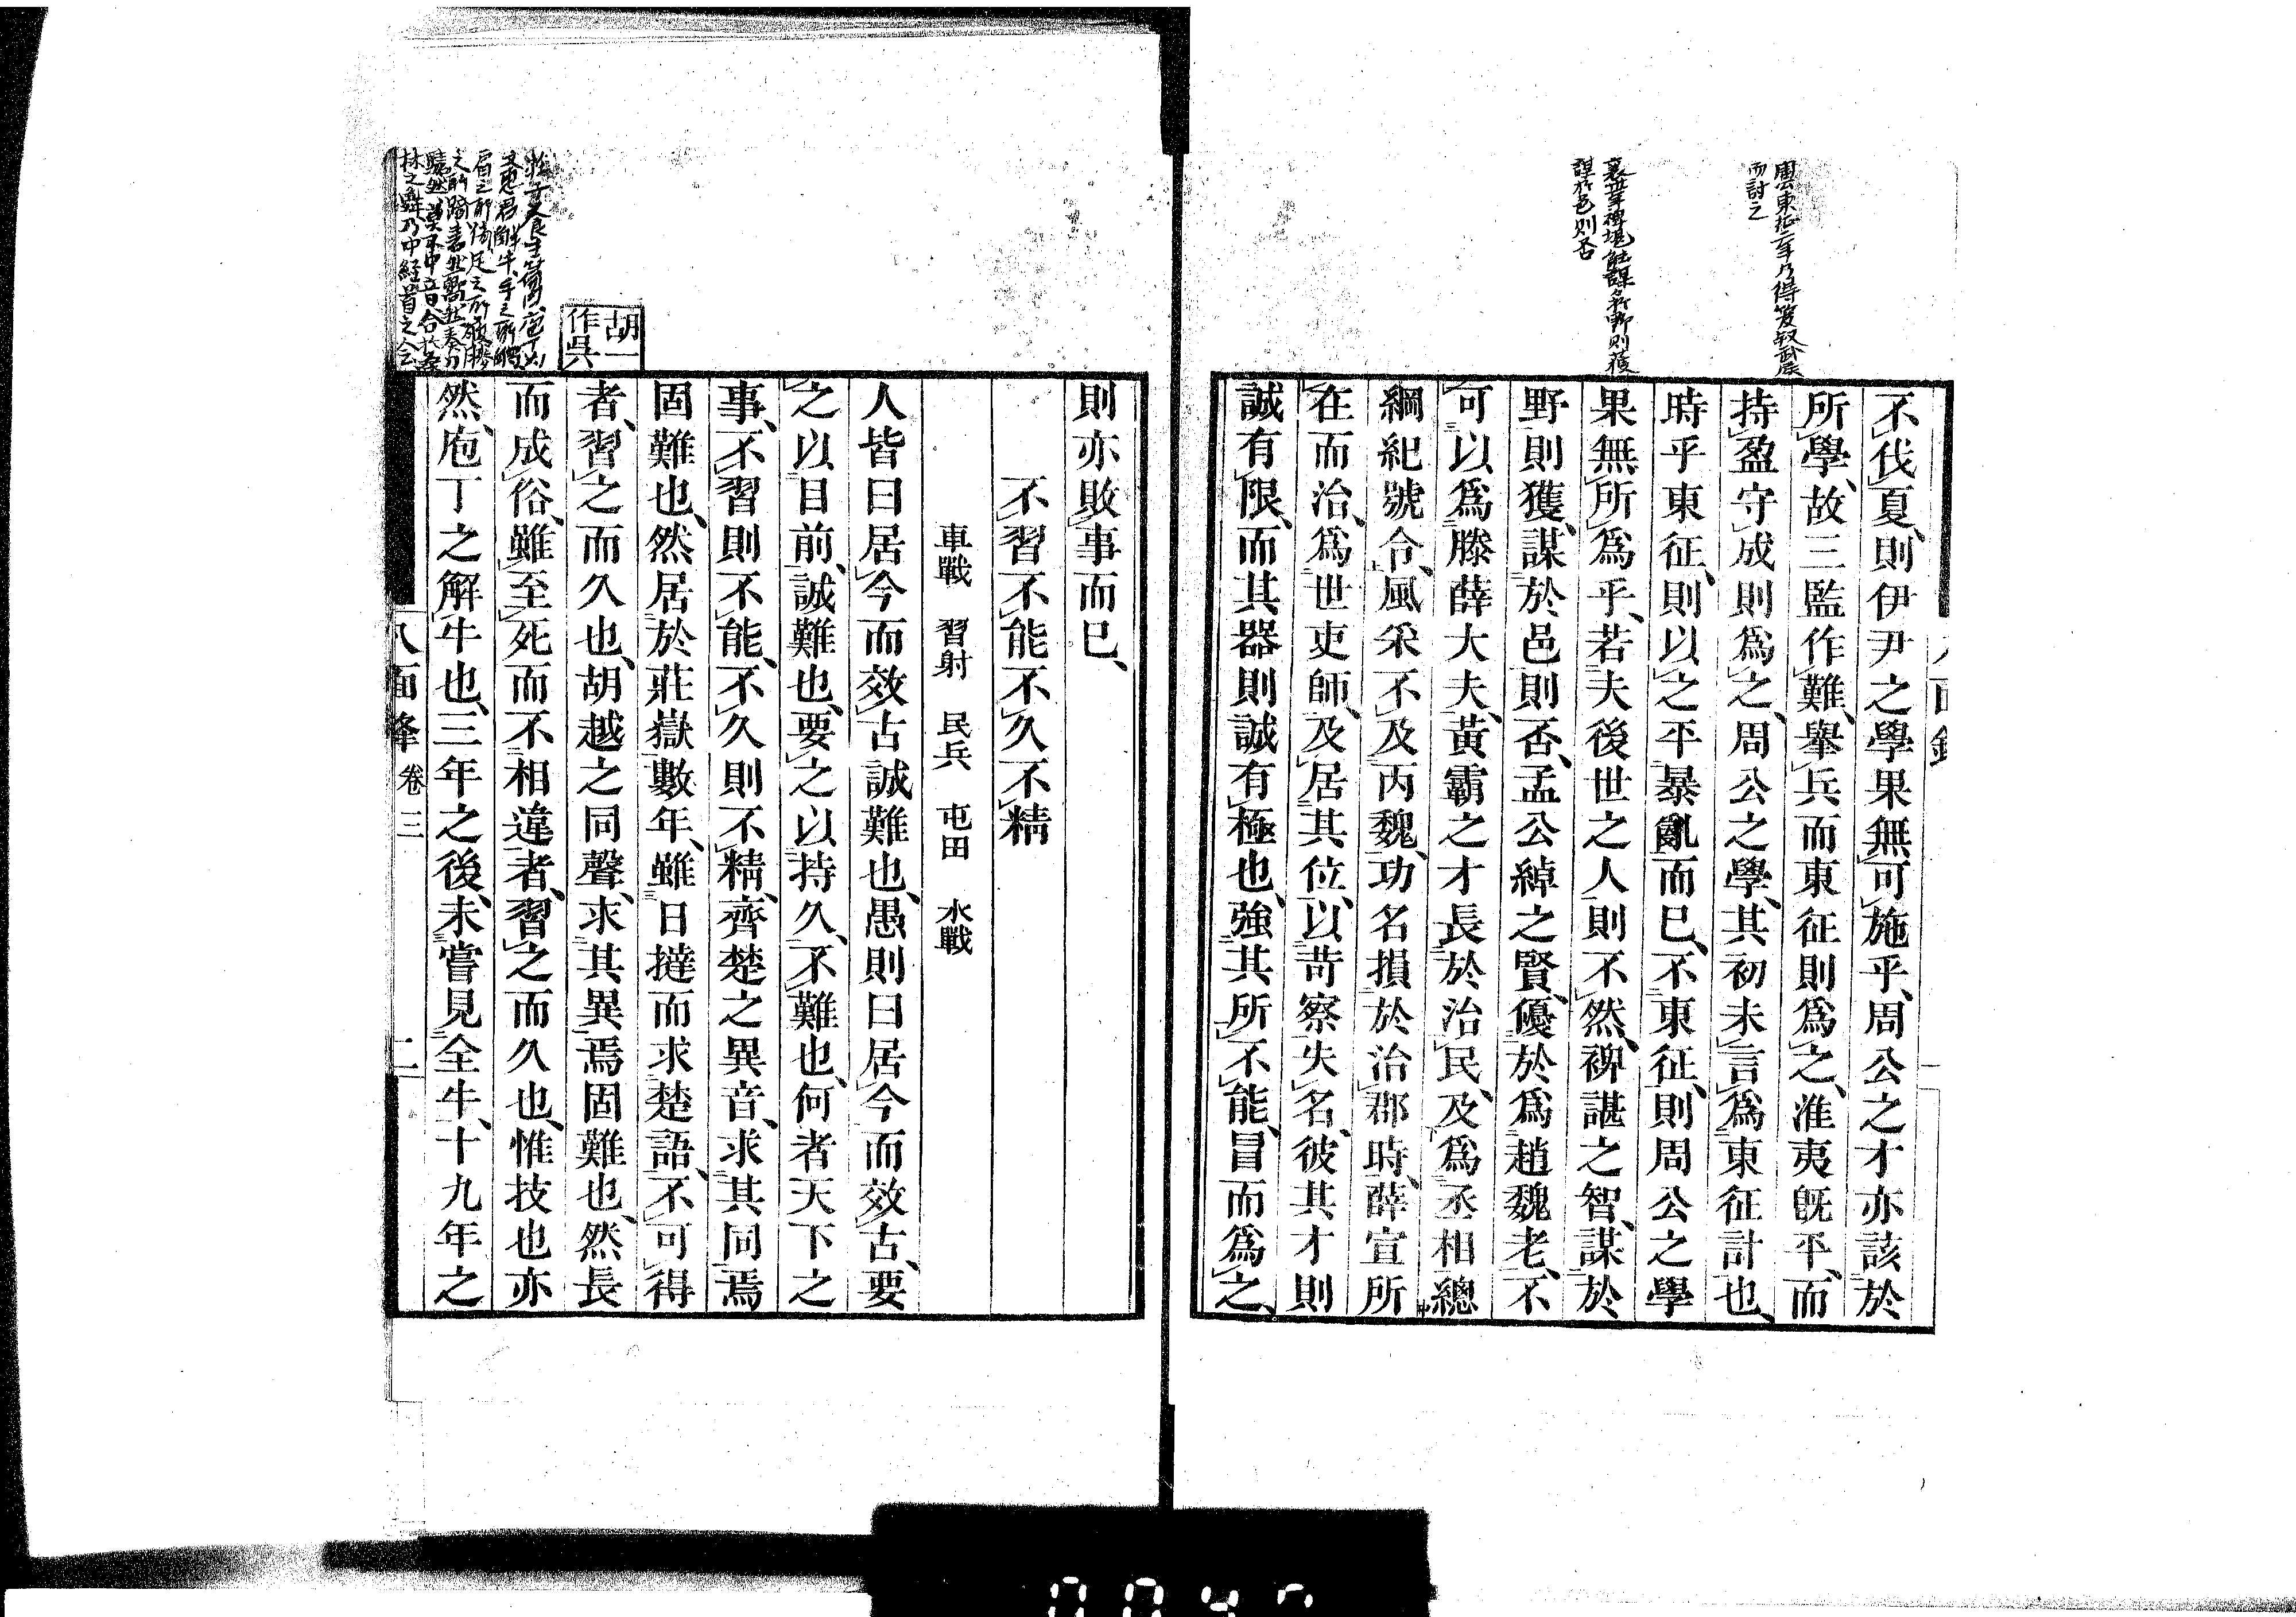 不伐夏、則伊尹之學果無可施乎、周公之才亦該於
所學、故三監作難、舉兵而東征則爲之、淮夷既平、而
持盈守成則爲之、周公之學、其初未言爲東征計也、
時乎東征、則以之平暴亂而已、不東征、則周公之學
果無所爲乎、若夫後世之人則不然、裨諶之智、謀於
野則獲、謀於邑則否、孟公綽之賢、優於爲趙魏老、不
可以爲滕薛大夫、黃霸之才長於治民、及爲丞相總
綱紀號令、風采不及丙魏、功名損於治郡時、薛宣所
在而治、爲世吏師、及居其位、以苛察失名、彼其才則
誠有限、而其器則誠有極也、強其所不能、冒而爲之、
則亦敗事而已、
不習不能不久不精
車戰 習射 民兵 屯田 水戰
人皆曰居今而效古誠難也、愚則曰居今而效古、要
之以目前、誠難也、要之以持久、不難也、何者天下之
事、不習則不能、不久則不精、齊楚之異音、求其同焉
固難也、然居於莊嶽數年、雖日撻而求楚語、不可得
者、習之而久也、胡越之同聲、求其異焉固難也、然長
而成俗、雖至死而不相違者、習之而久也、惟技也亦
然、庖丁之解牛也、三年之後、未嘗見全牛、十九年之
八面鋒 卷三 二
胡一
作吳
周公東征二年乃得管叔武庚
而討之
謀於邑則否